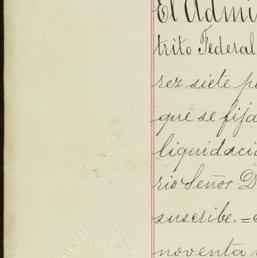 El Admi
trito Federal
rez siete p
que se fija
liquidaci
rio Señor D
suscribe.=
noventa